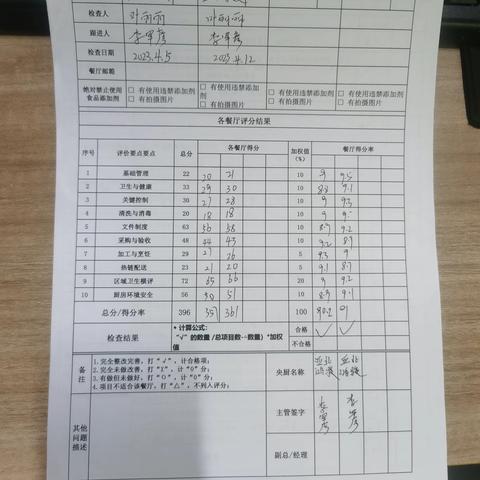 检查人 叶丽丽 叶丽丽
跟进人 李军彦 李军彦
检查日期 2023.4.5 2023.4.12
餐厅邮箱
绝对禁止使用食品添加剂 □ 有使用违禁添加剂 □ 有拍摄图片 □ 有使用违禁添加剂 □ 有拍摄图片 □ 有使用违禁添加剂 □ 有拍摄图片 □ 有使用违禁添加剂 □ 有拍摄图片
各餐厅评分结果
序号 评价要点要点 总分 各餐厅得分 加权值(%) 餐厅得分率
1 基础管理 22 20 21 10 9 9.5
2 卫生与健康 33 29 30 10 8.8 9.1
3 关键控制 30 27 28 10 9 9.3
4 清洗与消毒 20 18 18 10 9 9
5 文件制度 63 56 58 10 8.9 9.2
6 采购与验收 48 44 43 10 9.2 8.9
7 加工与烹饪 29 27 26 5 9.3 9
8 热链配送 23 21 20 5 9.1 8.7
9 区域卫生横评 72 65 66 20 9 9.2
10 厨房环境安全 56 50 51 10 8.9 9.1
总分/得分率 396 357 361 100 90.2 91
检查结果 * 计算公式: 合格 √ √
"√"的数量 /总项目数--数量) *加权值 不合格
备注 1.完全整改完善,打"√",计合格项;
2.完全未做改善,打"X",计"0"分;
3.有做但未做好,打"O",计"0"分;
4.项目不适合该餐厅,打"△",不列入评分;
央厨名称
其他问题描述
主管签字 李军彦 李军彦
副总/经理